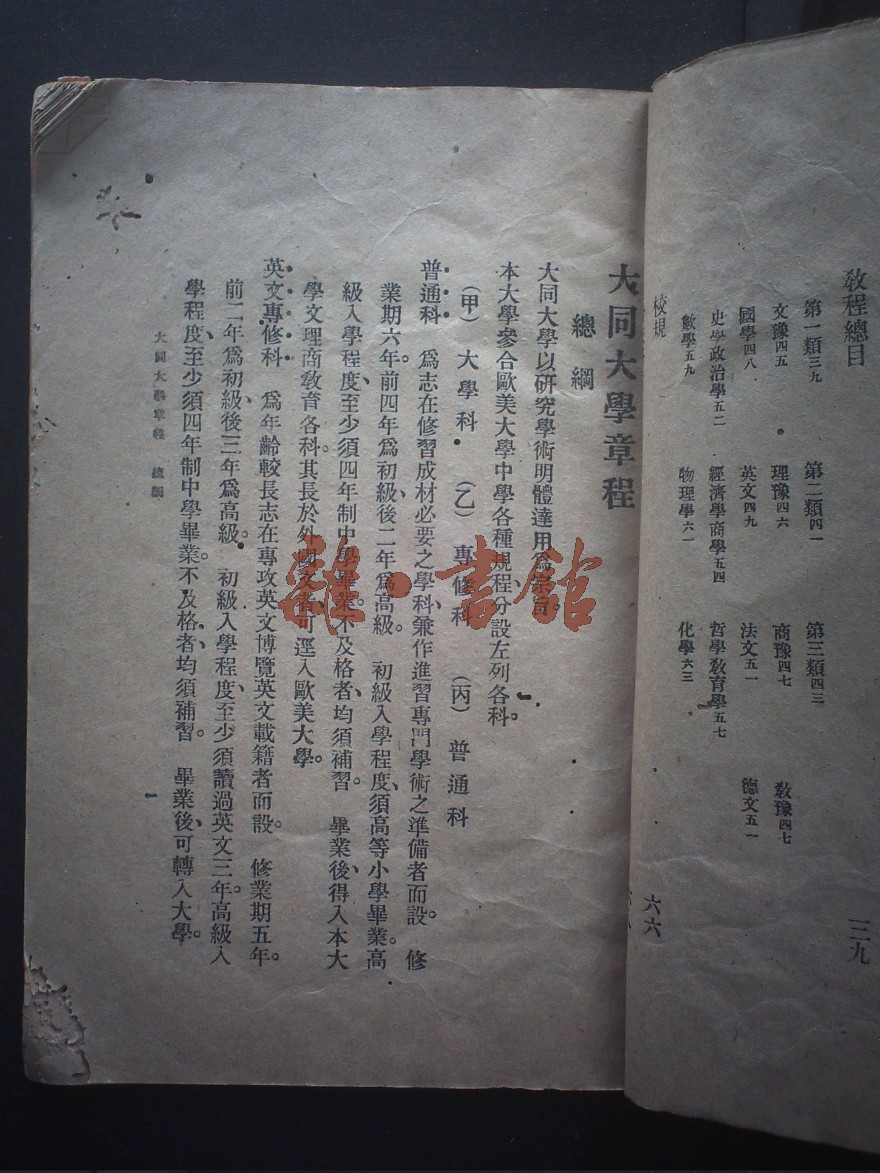 教程總目 三九
第一類三九 第二類四一 第三類四三
文豫四五 理豫四六 商豫四七 教豫四七
國學四八 英文四九 法文五一 德文五一
史學政治學五二 經濟學商學五四 哲學教育學五七
數學五九 物理學六一 化學六三
校規 六六
大同大學章程
總綱
大同大學以研究學術明體達用爲宗旨。
本大學參合歐美大學中學各種規程分設左列各科。
(甲)大學科 (乙)專修科 (丙)普通科
普通科 爲志在修習成材必要之學科、兼作進習專門學術之準備者而設。 修
業期六年。前四年爲初級、後二年爲高級。 初級入學程度、須高等小學畢業。高
級入學程度、至少須四年制中學畢業。不及格者、均須補習。 畢業後、得入本大
學文理商教育各科。其長於外國文者、可逕入歐美大學。
英文專修科 爲年齡較長志在專攻英文博覽英文載籍者而設。 修業期五年。
前二年爲初級、後三年爲高級。 初級入學程度、至少須讀過英文三年。高級入
學程度、至少須四年制中學畢業。不及格者、均須補習。 畢業後、可轉入大學。
大同大學章程 總綱
一
雜·書館